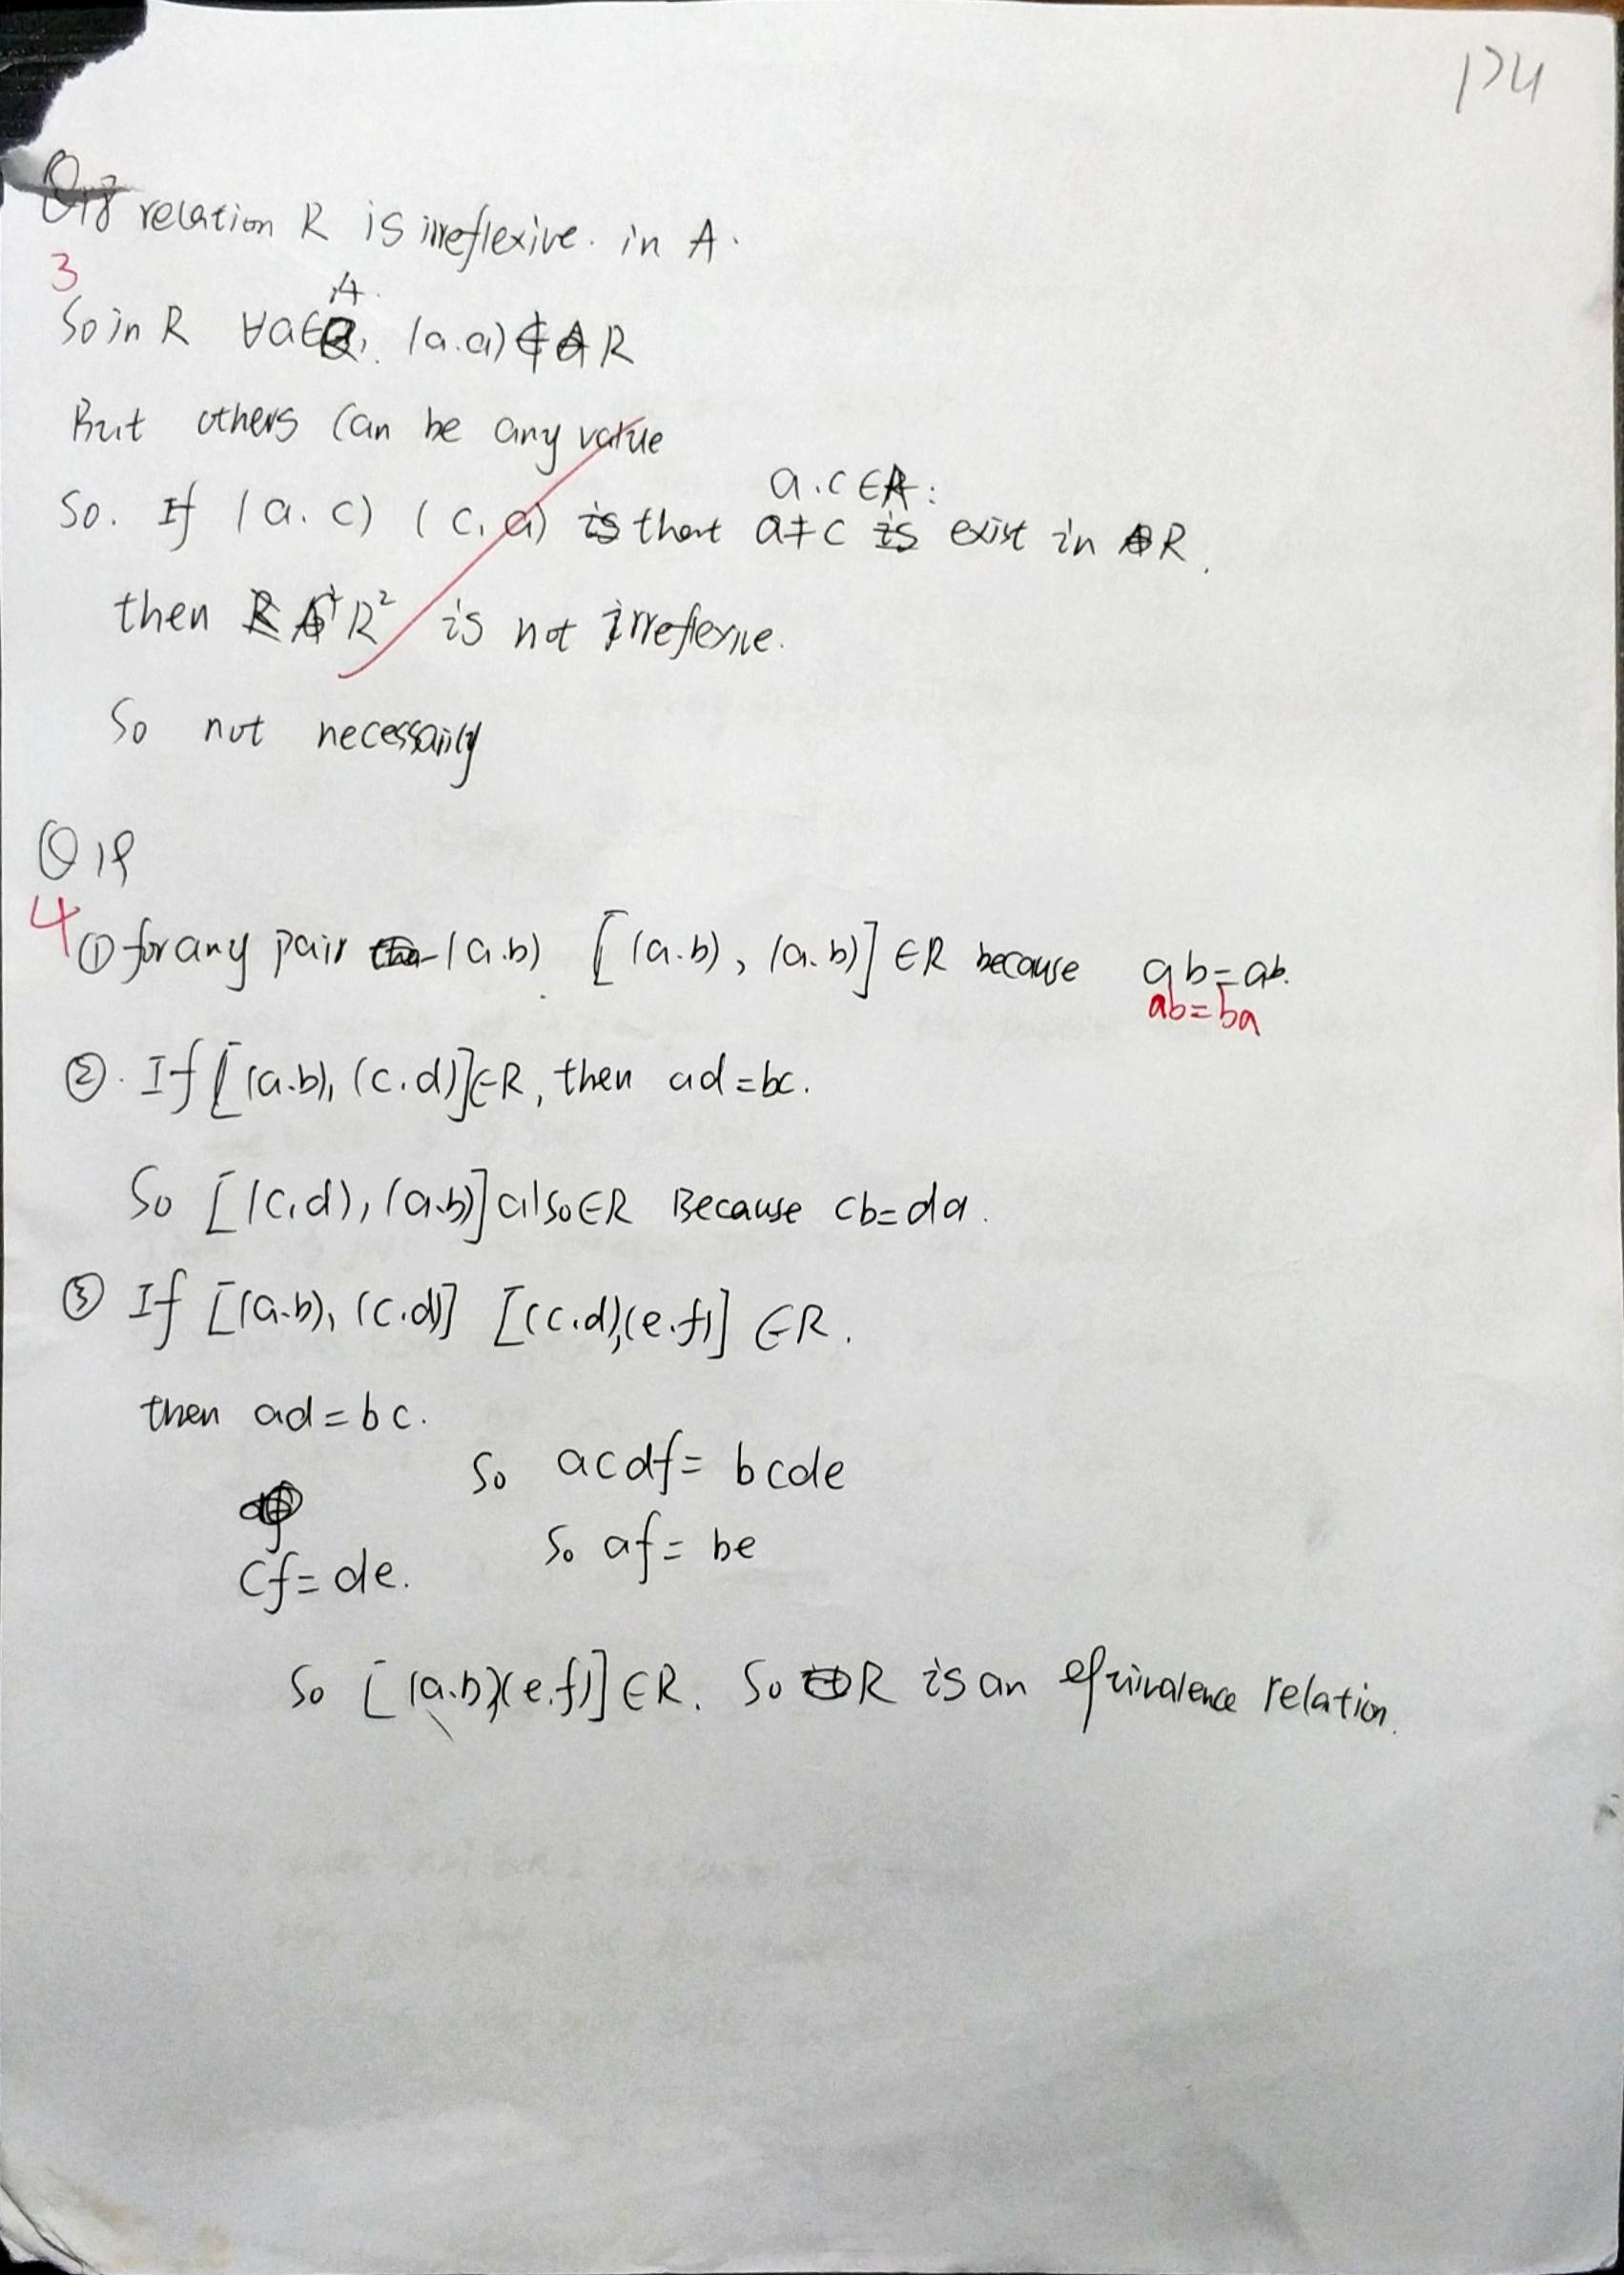 174
Q18 relation R is irreflexive. in A.
3
A
So in R ∀a∈ , (a.a)∉ R
But others can be any value
a.c∈A:
So. If (a.c) (c,a) is that a≠c is exist in R.
then R R² is not irreflexive.
So not necessarily
Q19
4
① for any pair (a.b) [(a.b), (a.b)]∈R because ab=ab.
ab=ba
②. If [(a.b), (c.d)]∈R, then ad=bc.
So [(c,d), (a.b)] also∈R Because cb=da.
③ If [(a.b), (c.d)] [(c.d),(e.f)] ∈R.
then ad=bc.
So acdf= bcde
So af= be
cf=de.
So [(a.b),(e.f)]∈R. So R is an equivalence relation.